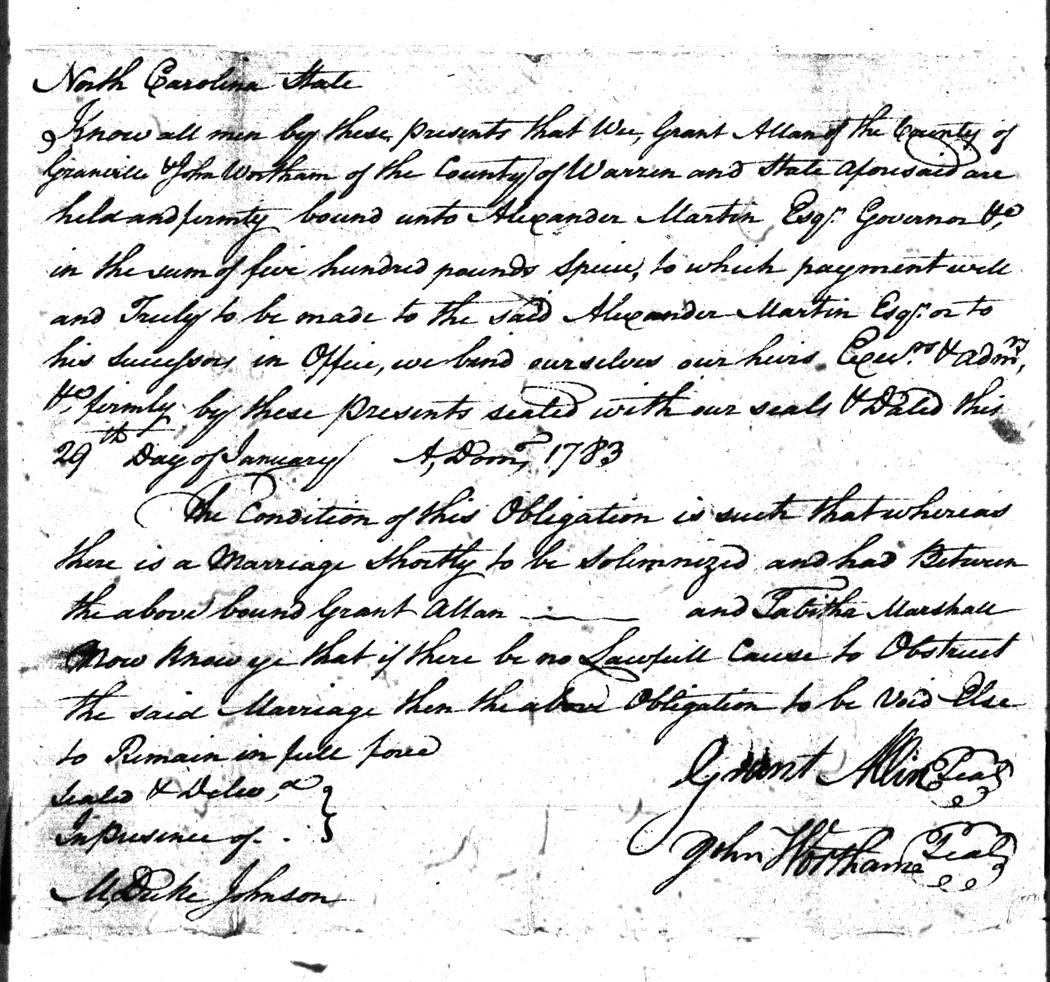 North Carolina State
Know all men by these presents that Wee, Grant Allan of the County of
Granville & John Wortham of the County of Warren and State aforesaid are
held and firmly bound unto Alexander Martin Esqr. Governor &c,
in the sum of five hundred pounds Specie, to which payment well
and Truly to be made to the said Alexander Martin Esqr. or to
his Successors in Office, we bind ourselves our heirs Execrs. & admrs,
&c, firmly by these presents sealed with our seals & Dated this
29th Day of January A, Dom, 1783
The Condition of this Obligation is such that whereas
there is a Marriage shortly to be Solemnized and had Between
the above bound Grant Allan and Tabitha Marshall
Now Know ye that if there be no Lawfull Cause to Obstruct
the said Marriage then the above Obligation to be Void Else
to Remain in full force
Sealed & Deliv,d
In presence of
Grant Allin Seal
John Wortham Seal
M, Duke Johnson